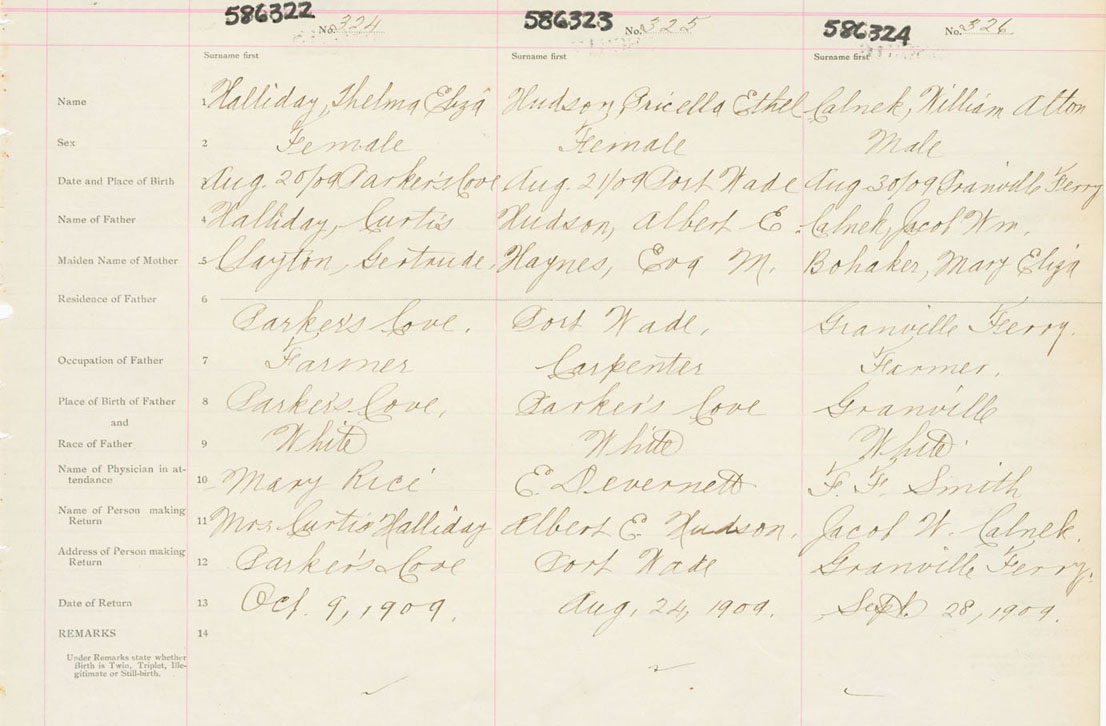 586322 No. 324 586323 No. 325 586324 No. 326
Surname first Surname first Surname first
Name 1 Halliday, Thelma Eliza Hudson, Pricella Ethel Calnek, William Alton
Sex 2 Female Female Male
Date and Place of Birth 3 Aug. 20/09 Parker's Cove Aug. 21/09 Port Wade Aug 30/09 Granville Ferry
Name of Father 4 Halliday, Curtis Hudson, Albert E. Calnek, Jacob Wm.
Maiden Name of Mother 5 Clayton, Gertrude. Haynes, Eva M. Bohaker, Mary Eliza
Residence of Father 6
Parker's Cove. Port Wade. Granville Ferry.
Occupation of Father 7 Farmer Carpenter Farmer.
Place of Birth of Father 8 Parker's Cove. Parker's Cove Granville
and
Race of Father 9 White White White
Name of Physician in at-
tendance 10 Mary Rice E. Devernett F. F. Smith
Name of Person making
Return 11 Mrs. Curtis Halliday Albert E Hudson. Jacob W. Calnek.
Address of Person making
Return 12 Parker's Cove Port Wade Granville Ferry.
Date of Return 13 Oct. 9, 1909. Aug. 24, 1909. Sept. 28, 1909.
REMARKS 14
Under Remarks state whether
Birth is Twin, Triplet, Ille-
gitimate or Still-birth.